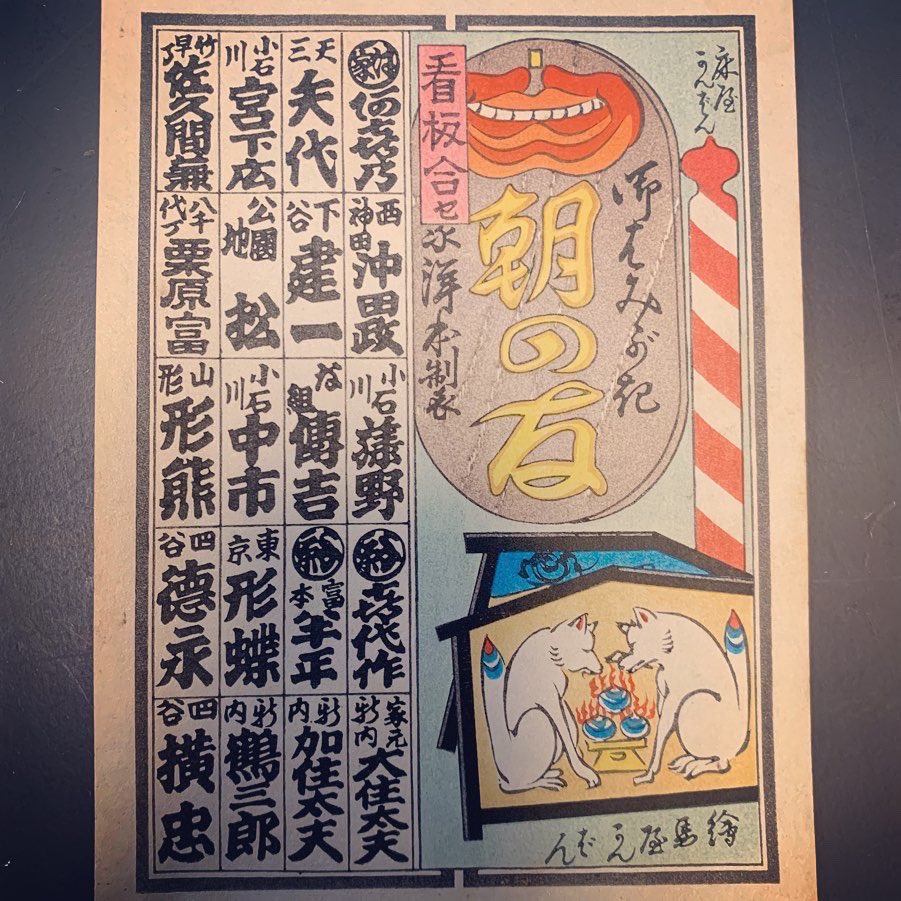 床屋
かんばん
御はみがき
朝の友
看板合セ
氷洋本制衣
繪馬屋かんばん
西神田 沖田政
小石川 藤野
喜代作
家元 新内 大住太夫
天三 矢代
下谷 建一
な組 傳吉
富本 半年
新内 加住太夫
小石川 宮下広
公園地 松
小石川 中市
東京 形蝶
新内 鶴三郎
竹早了 佐久間兼
八千代了 栗原富
山形 形熊
四谷 德永
四谷 横忠